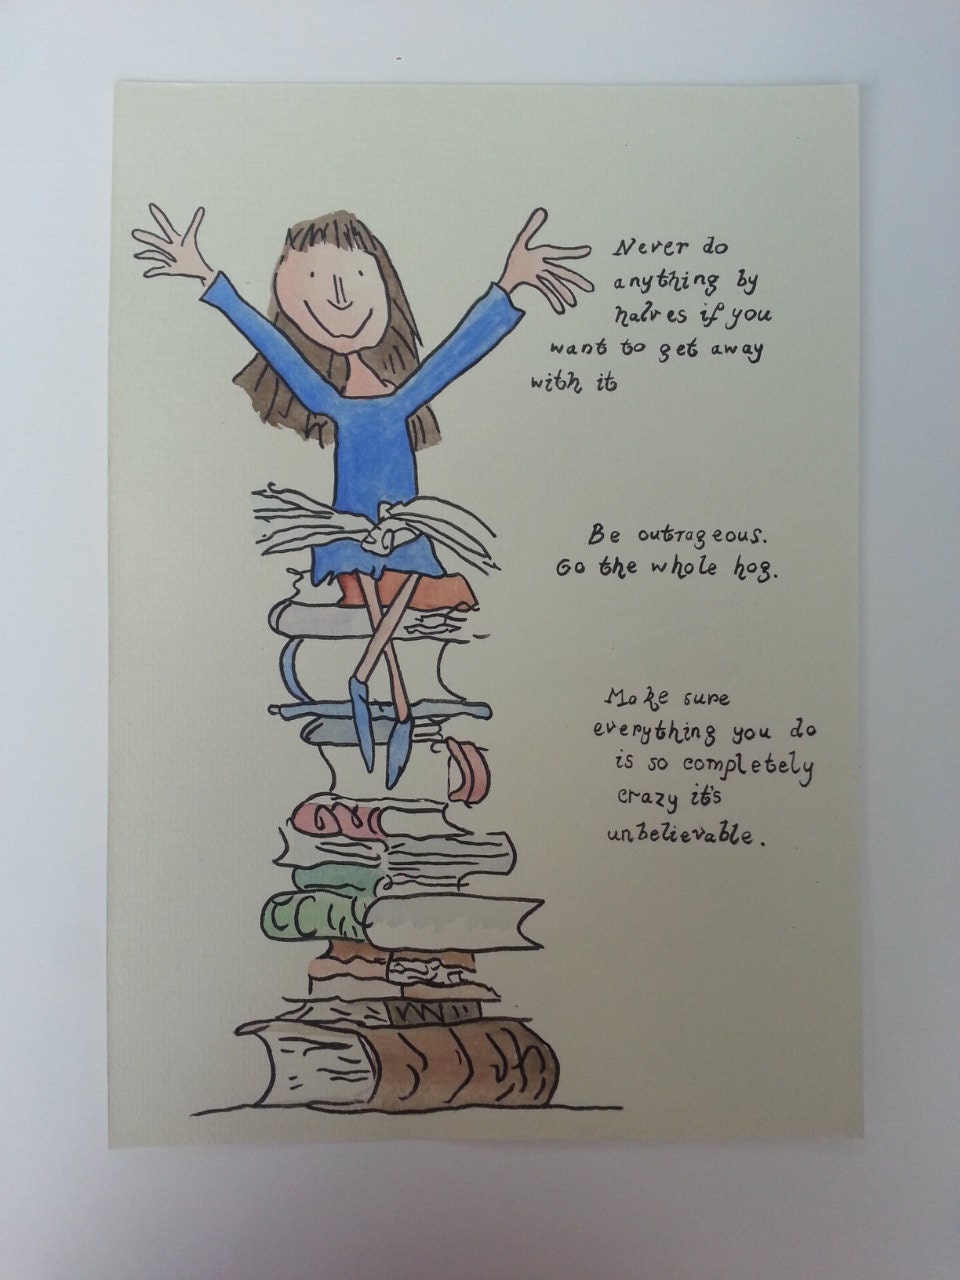 Never do
anything by
halves if you
want to get away
with it
Be outrageous.
Go the whole hog.
Make sure
everything you do
is so completely
crazy it's
unbelievable.